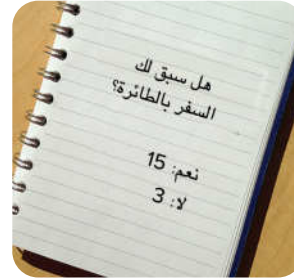 هل سبق لك
السفر بالطائرة؟
نعم: 15
لا: 3